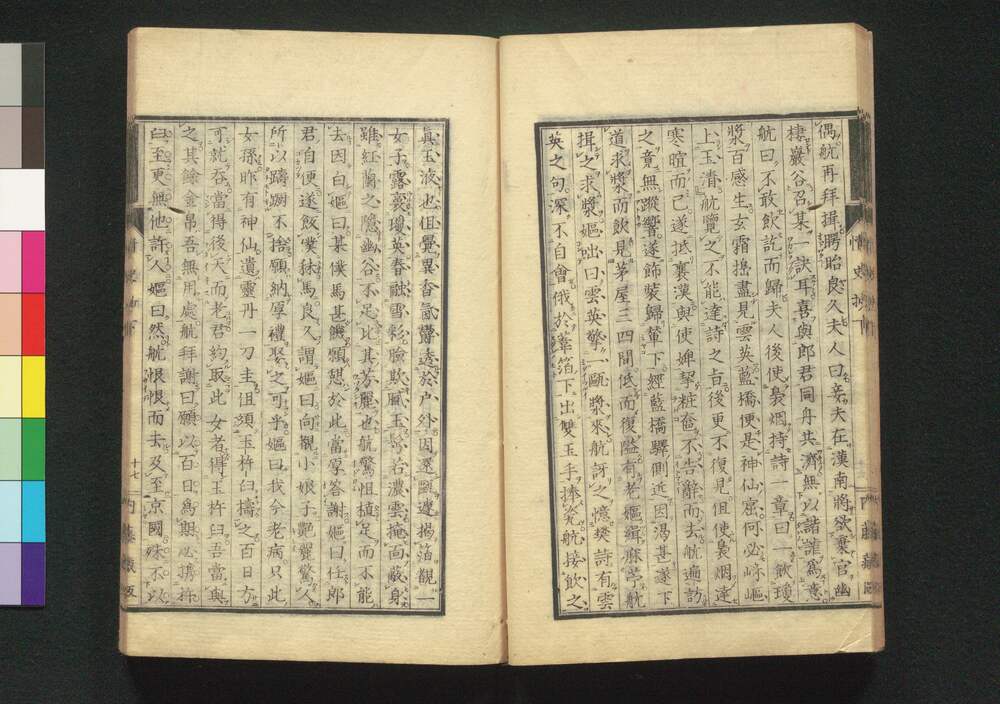 偶航再拜揖瞪眙良久夫人曰妾夫在漢南將欲棄官幽
棲巖谷召某一訣耳喜與郎君同舟共濟無以諧謔爲意
航曰不敢飲訖而歸夫人後使裊烟持詩一章曰一飲瓊
漿百感生玄霜搗盡見雲英藍橋便是神仙窟何必崎嶇
上玉淸航覽之不能達詩之旨後更不復見但使裊烟達
寒暄而已遂抵襄漢與使婢挈粧奩不告辭而去航遍訪
之竟無蹤響遂飾裝歸輦下經藍橋驛側近因渴甚遂下
道求漿而飲見茅屋三四間低而復隘有老嫗緝麻苧航
揖之求漿嫗出曰雲英擎一甌漿來航訝之憶樊詩有雲
英之句深不自會俄於葦箔下出雙玉手捧瓷航接飲之
情史抄下
眞玉液也但覺異香氤鬱透於戶外因還甌遽揭箔覩一
女子露裛瓊英春融雪彩臉欺膩玉鬢若濃雲掩面蔽身
雖紅蘭之隱幽谷不足比其芳麗也航驚怛植足而不能
去因白嫗曰某僕馬甚饑願憩於此當厚答謝嫗曰任郎
君自便遂飯僕秣馬良久謂嫗曰向覩小娘子艷麗驚人
所以躊躕不捨願納厚禮娶之可乎嫗曰我今老病只此
女孫昨有神仙遺靈丹一刀圭但須玉杵臼擣之百日方
可就吞當得後天而老君約取此女者得玉杵臼吾當與
之其餘金帛吾無用處航拜謝曰願以百日爲期必携杵
臼至更無他許人嫗曰然航恨恨而去及至京國殊不以
十七